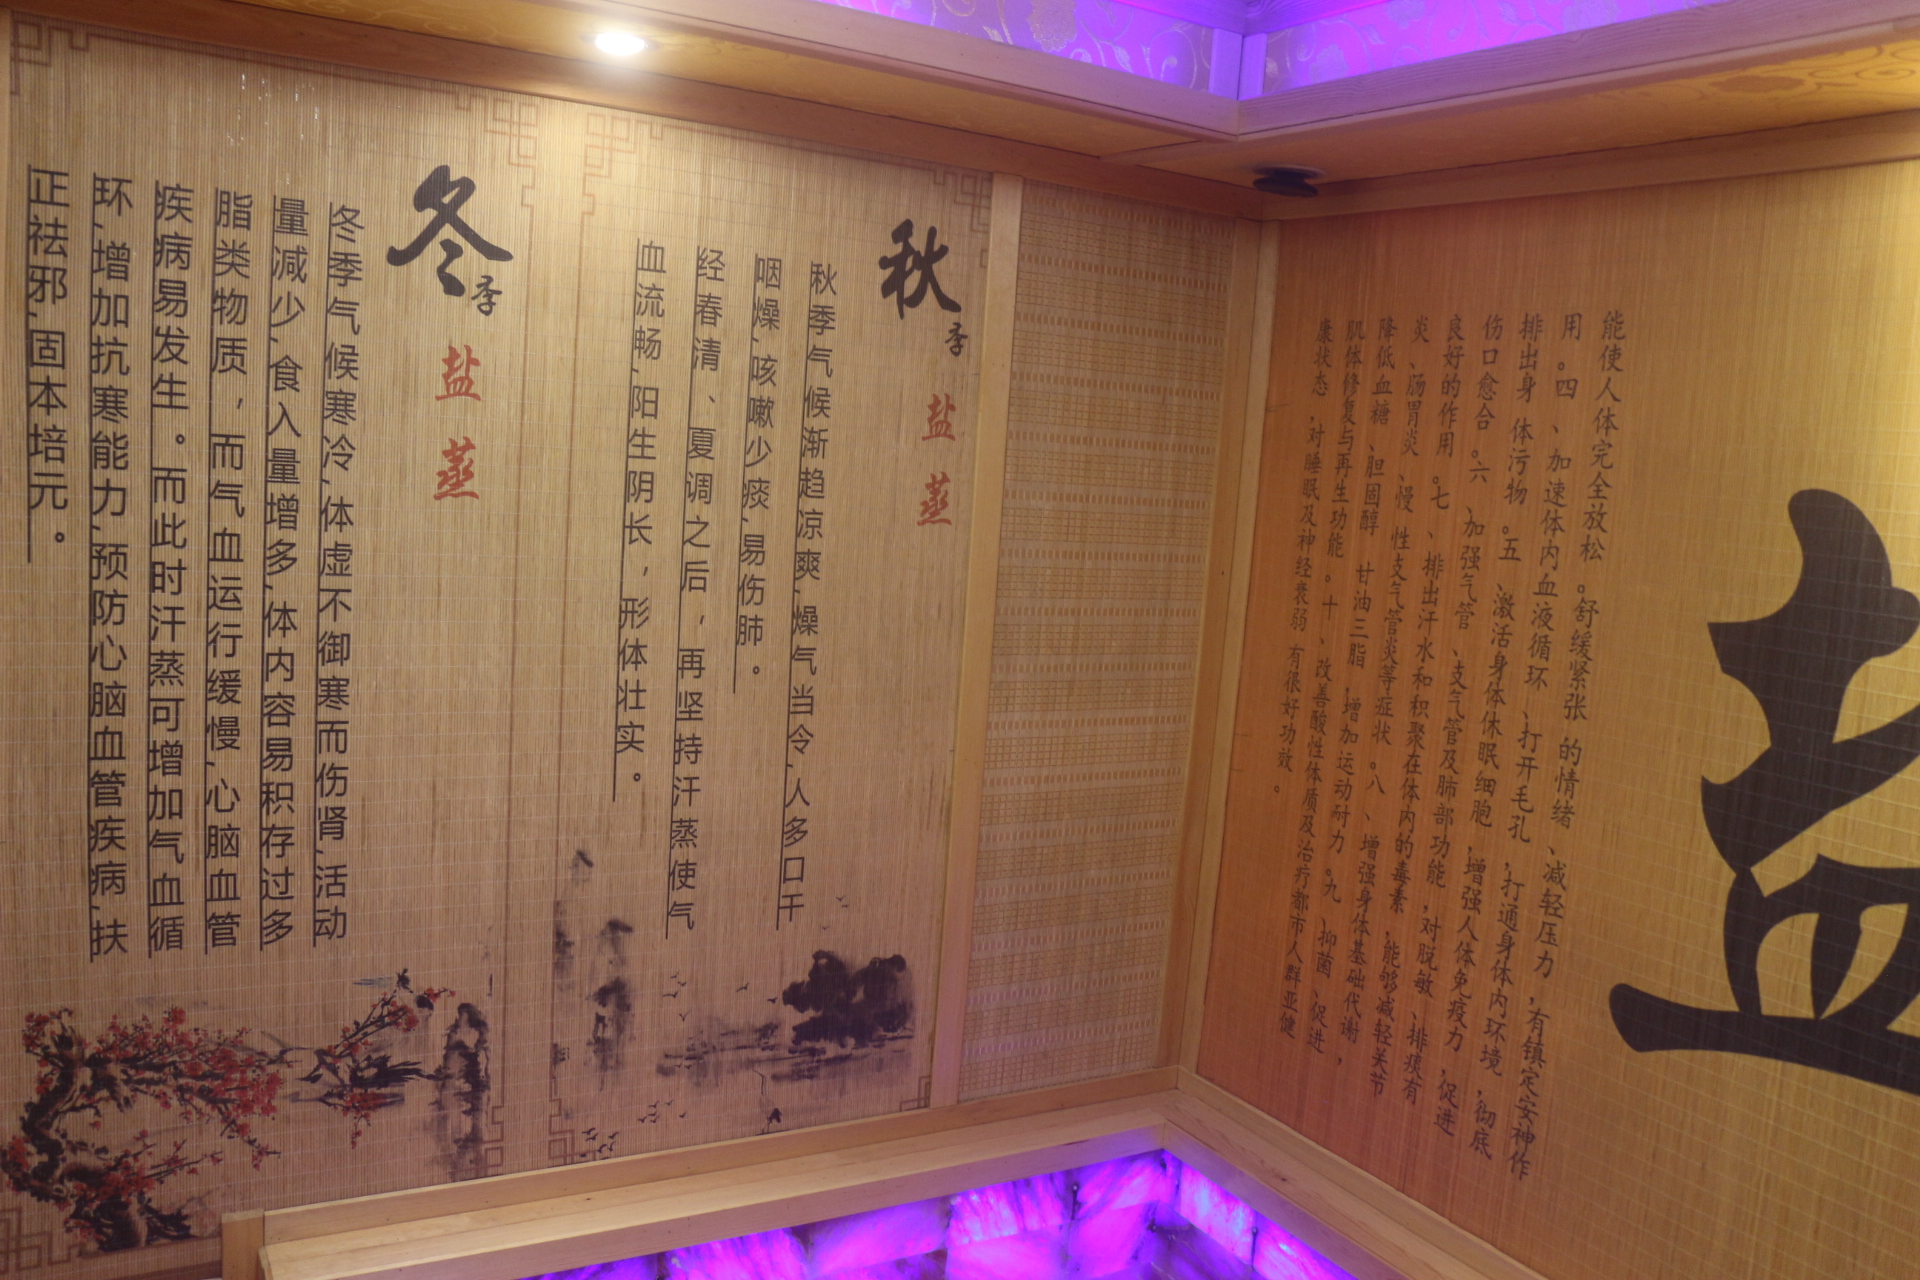 盐
能使人体完全放松。舒缓紧张的情绪、减轻压力,有镇定安神作
用。四、加速体内血液循环、打开毛孔,打通身体内环境,彻底
排出身体污物。五、激活身体休眠细胞,增强人体免疫力,促进
伤口愈合。六、加强气管、支气管及肺部功能,对脱敏、排痰有
良好的作用。七、排出汗水和积聚在体内的毒素,能够减轻关节
炎、肠胃炎、慢性支气管炎等症状。八、增强身体基础代谢,
降低血糖、胆固醇、甘油三脂,增加运动耐力。九、抑菌、促进
肌体修复与再生功能。十、改善酸性体质及治疗都市人群亚健
康状态,对睡眠及神经衰弱有很好功效。
秋季盐蒸
秋季气候渐趋凉爽、燥气当令、人多口干
咽燥、咳嗽少痰、易伤肺。
经春清、夏调之后,再坚持汗蒸使气
血流畅、阳生阴长,形体壮实。
冬季盐蒸
冬季气候寒冷、体虚不御寒而伤肾、活动
量减少、食入量增多、体内容易积存过多
脂类物质,而气血运行缓慢、心脑血管
疾病易发生。而此时汗蒸可增加气血循
环、增加抗寒能力、预防心脑血管疾病、扶
正祛邪、固本培元。